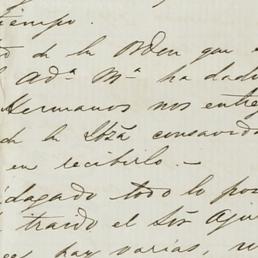 tiempo.
de la Orden que
Adª. Mª. ha dado
Hermanos nos entreg
de la Izã consavida
en recibirlo.—
dagado todo lo pos
traido el Sõr Agui
hay varias,